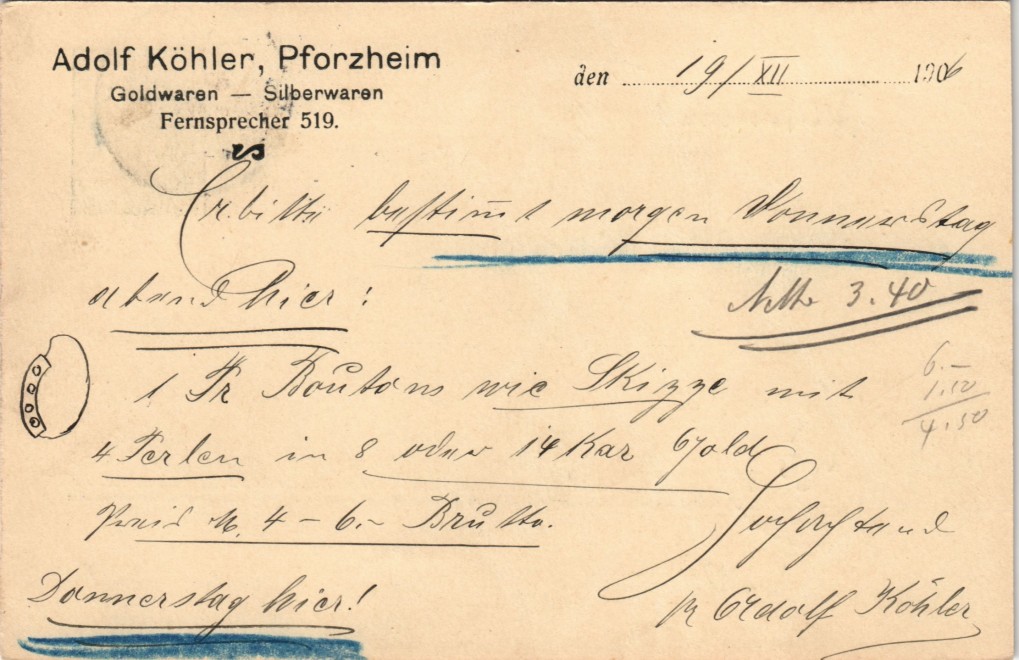 Adolf Köhler, Pforzheim
Goldwaren — Silberwaren
Fernsprecher 519.
den 19/XII 1906
Erbitte bestimt morgen Donnerstag
abend hier:
Netto 3.40
1 Pr Boutons wie Skizze mit
6.–
1.50
4.50
4 Perlen in 8 oder 14 Kar Gold
Preis M. 4 – 6.– Brutto.
Hochachtend
Donnerstag hier!
pr Adolf Köhler